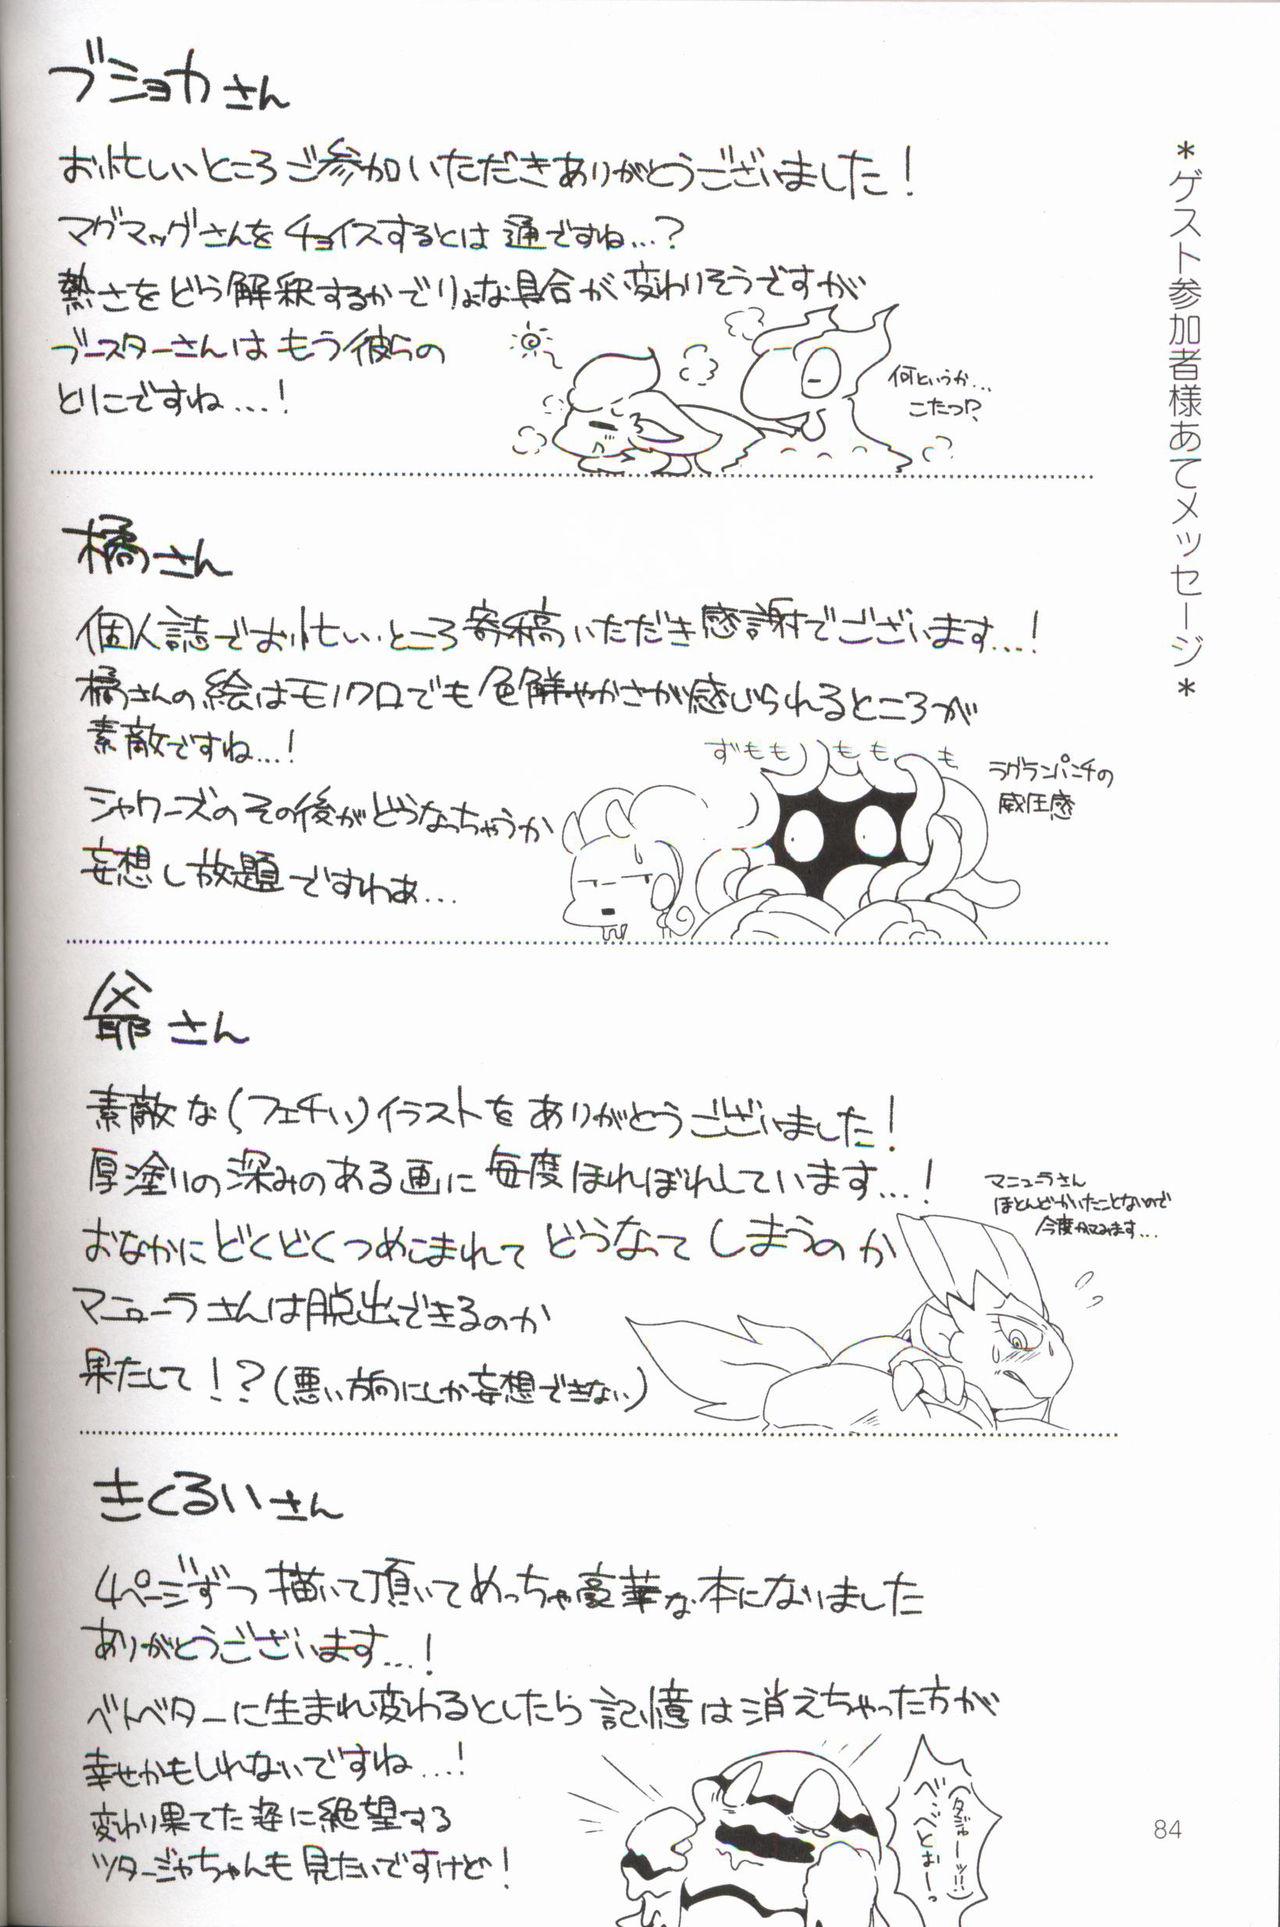 ＊ゲスト参加者様あてメッセージ＊
ブショカさん
お忙しいところご参加いただきありがとうございました！
マグマッグさんをチョイスするとは通ですね…？
熱さをどう解釈するかでりょな具合が変わりそうですが
ブースターさんはもう彼らの
とりこですね…！
何というか…
こたつ!?
橘さん
個人誌でお忙しいところ寄稿いただき感謝でございます…！
橘さんの絵はモノクロでも色鮮やかさが感じられるところが
素敵ですね…！
シャワーズのその後がどうなっちゃうか
妄想し放題ですわぁ…
ずもももももも
ラグランパンチの
威圧感
爺さん
素敵な(フェチい)イラストをありがとうございました！
厚塗りの深みのある画に毎度ほれぼれしています…！
おなかにどくどくつめこまれてどうなってしまうのか
マニューラさんは脱出できるのか
果たして！？(悪い方向にしか妄想できない)
マニューラさん
ほとんどかいたことないので
今度かいてみます…
きくるいさん
4ページずつ描いて頂いてめっちゃ豪華な本になりました
ありがとうございます…！
ベトベターに生まれ変わるとしたら記憶は消えちゃった方が
幸せかもしれないですね…！
変わり果てた姿に絶望する
ツタージャちゃんも見たいですけど！
84